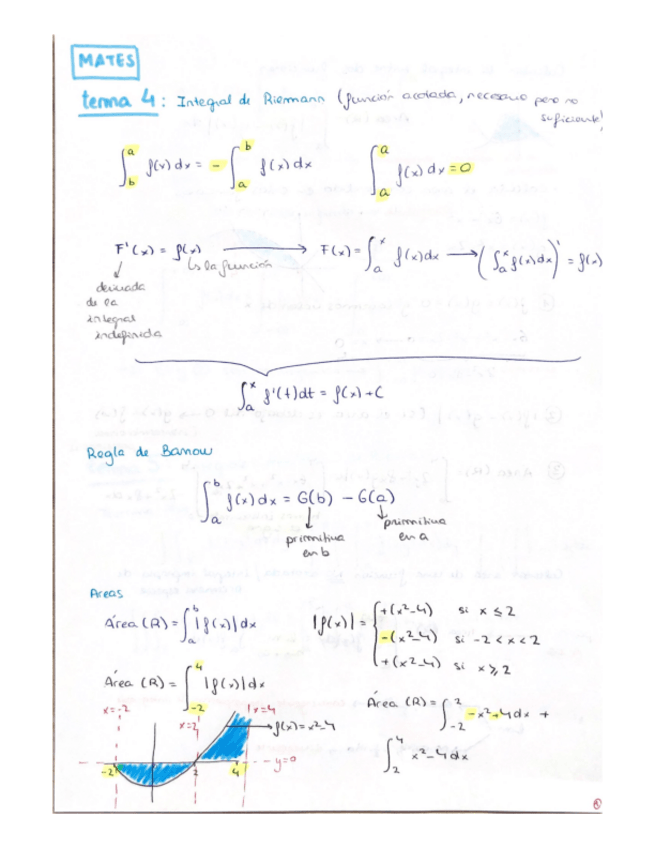 MATES
tema 4: Integral de Riemann (función acotada, necesario pero no suficiente)
∫_b^a f(x) dx = - ∫_a^b f(x) dx
∫_a^a f(x) dx = 0
F'(x) = f(x) → F(x) = ∫_a^x f(x) dx → (∫_a^x f(x) dx)' = f(x)
↳ la función
derivada
de la
integral
indefinida
∫_a^x f'(t) dt = f(x) + C
Regla de Barrow
∫_a^b f(x) dx = G(b) - G(a)
primitiva
en b
primitiva
en a
Areas
Área (R) = ∫_a^b |f(x)| dx
|f(x)| =
+(x²-4) si x ≤ 2
-(x²-4) si -2 < x < 2
+(x²-4) si x ≥ 2
Área (R) = ∫_-2^4 |f(x)| dx
Área (R) = ∫_-2^2 -x²+4 dx +
∫_2^4 x²-4 dx
x=-2
x=2
x=4
f(x) = x²-4
y=0
-2
2
4